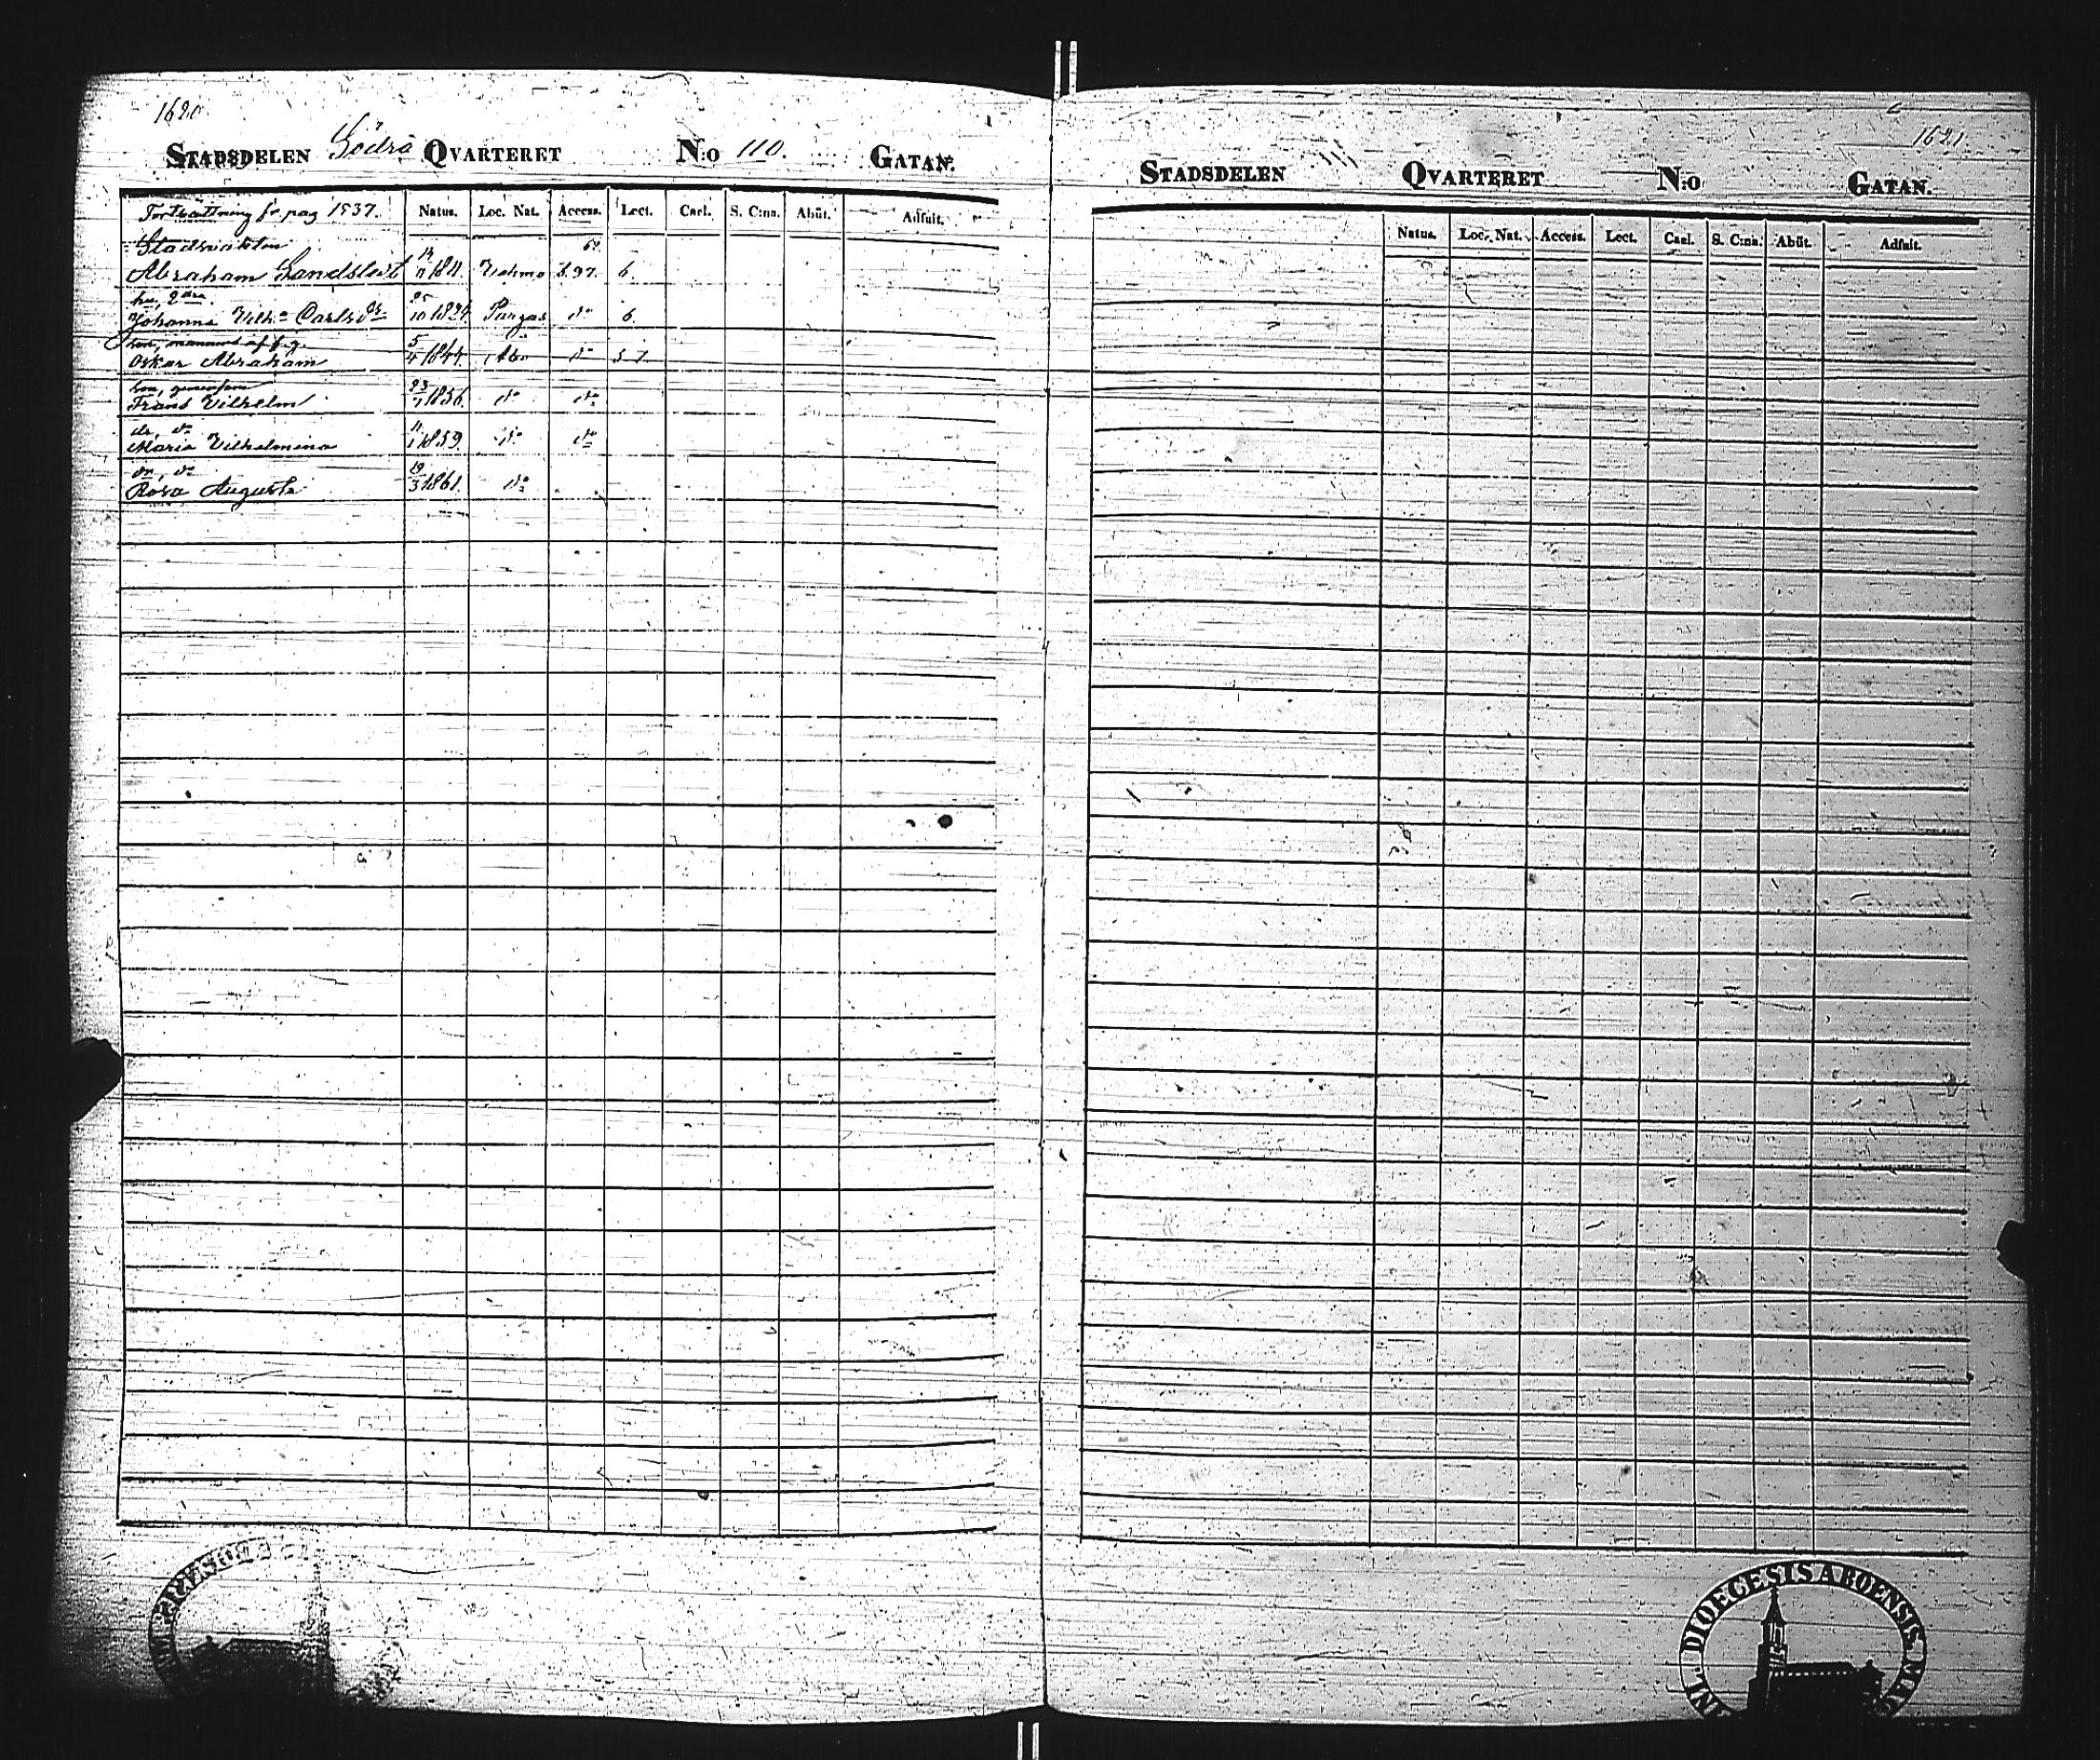 1620
STADSDELEN Södra QVARTERET N:o 110. GATAN.
Fortsättning fr pag 1537. Natus. Loc. Nat. Access. Lect. Cael. S. Cœna. Abiit. Adfuit.
Stadsvakten 62
Abraham Sandstedt 14/11 1811. Vehmo S.97. 6.
hu, 2dra
Johanna Vilh:a Carlsdr 25/10 1824. Pargas do 6.
son, mannens af f. g.
Oskar Abraham 5/4 1844. Åbo do 5.7.
son, gemensam
Frans Vilhelm 23/7 1856. do do
dr, do
Maria Vilhelmina 11/1 1859. do do
dr, do
Rosa Augusta 19/3 1861. do
1621.
STADSDELEN QVARTERET N:o GATAN.
Natus. Loc. Nat. Access. Lect. Cael. S. Cœna. Abiit. Adfuit.
DIOECESIS ABOENSIS